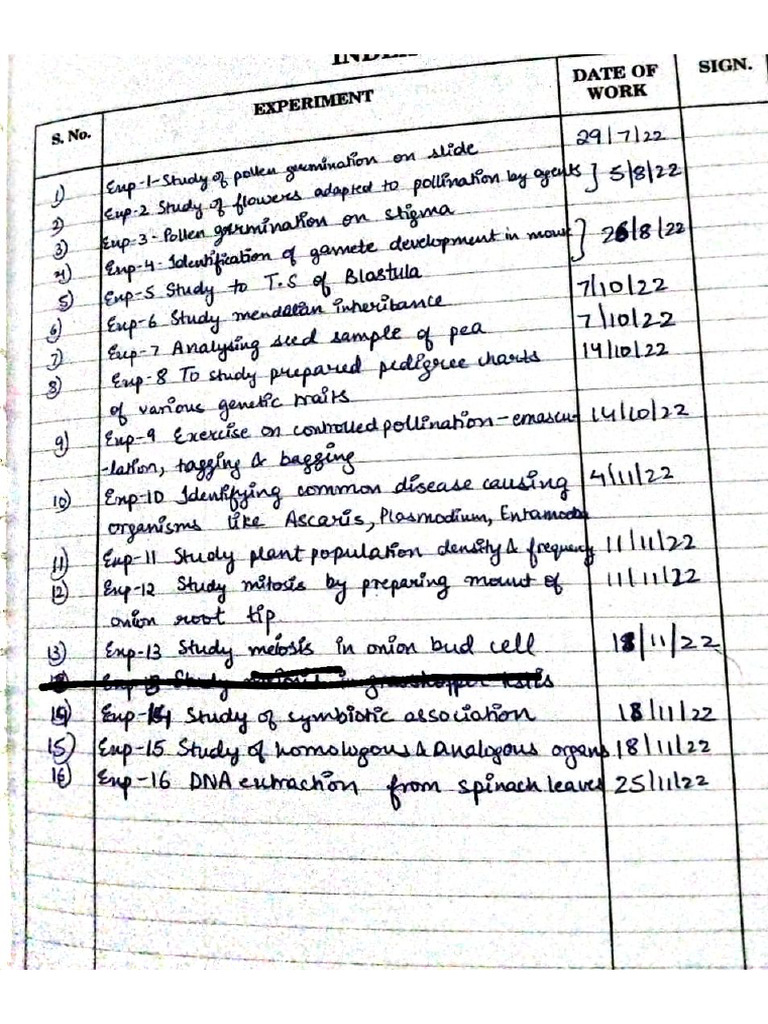 INDEX
S. No. EXPERIMENT DATE OF WORK SIGN.
1) Exp-1-Study of pollen germination on slide 29/7/22
2) Exp-2 Study of flowers adapted to pollination by agents } 5/8/22
3) Exp-3-Pollen germination on stigma
4) Exp-4-Identification of gamete development in mouse } 26/8/22
5) Exp-5 Study to T.S of Blastula
6) Exp-6 Study mendalian inheritance 7/10/22
7) Exp-7 Analysing seed sample of pea 7/10/22
8) Exp-8 To study prepared pedigree charts 14/10/22
of various genetic traits
9) Exp-9 Exercise on controlled pollination-emascu- 14/10/22
-lation, tagging & bagging
10) Exp-10 Identifying common disease causing 4/11/22
organisms like Ascaris, Plasmodium, Entamoeba
11) Exp-11 Study plant population density & frequency 11/11/22
12) Exp-12 Study mitosis by preparing mount of 11/11/22
onion root tip
13) Exp-13 Study meiosis in onion bud cell 18/11/22
14) Exp-14 Study of symbiotic association 18/11/22
15) Exp-15 Study of homologous & Analogous organs 18/11/22
16) Exp-16 DNA extraction from spinach leaves 25/11/22